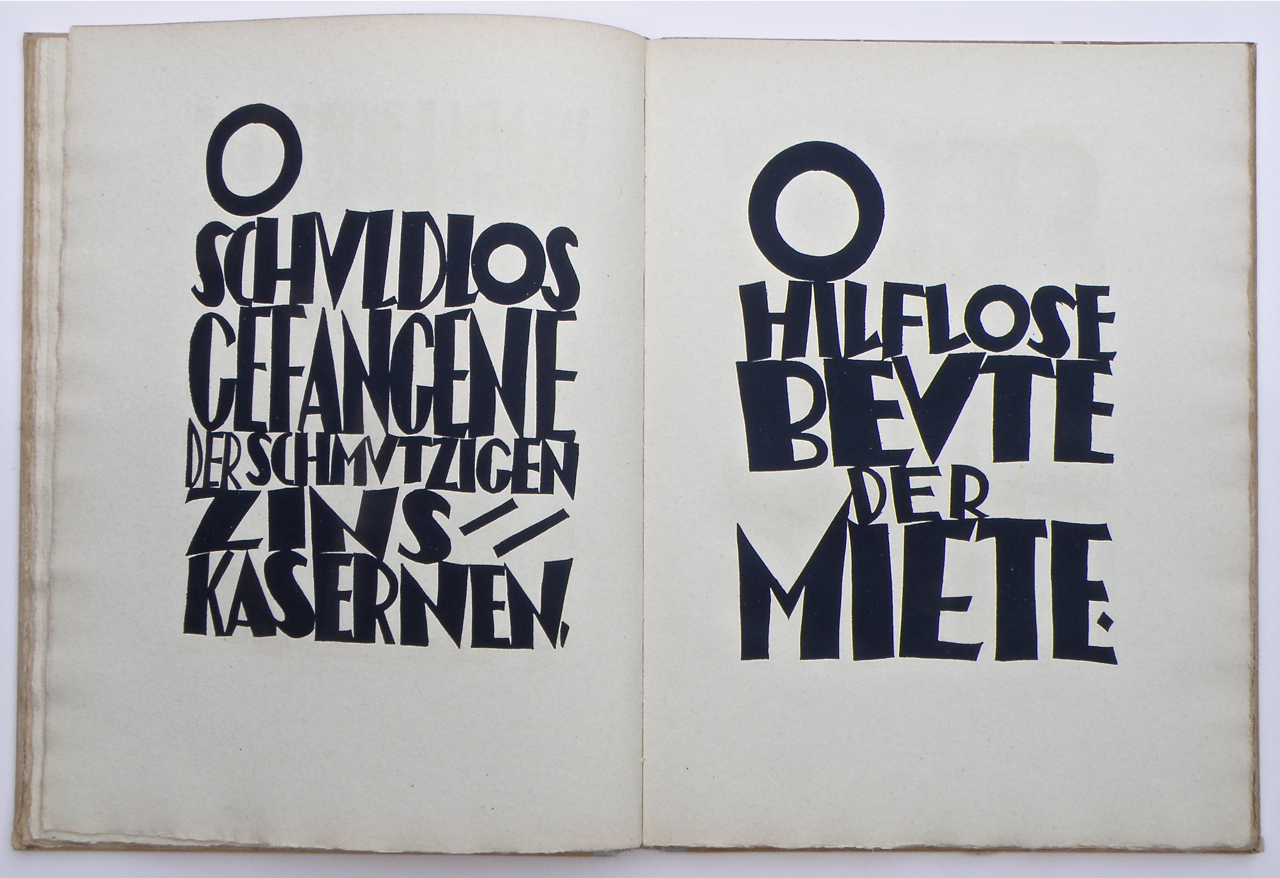 O
SCHVLDLOS
GEFANGENE
DER SCHMVTZIGEN
ZINS//
KASERNEN.
O
HILFLOSE
BEVTE
DER
MIETE.